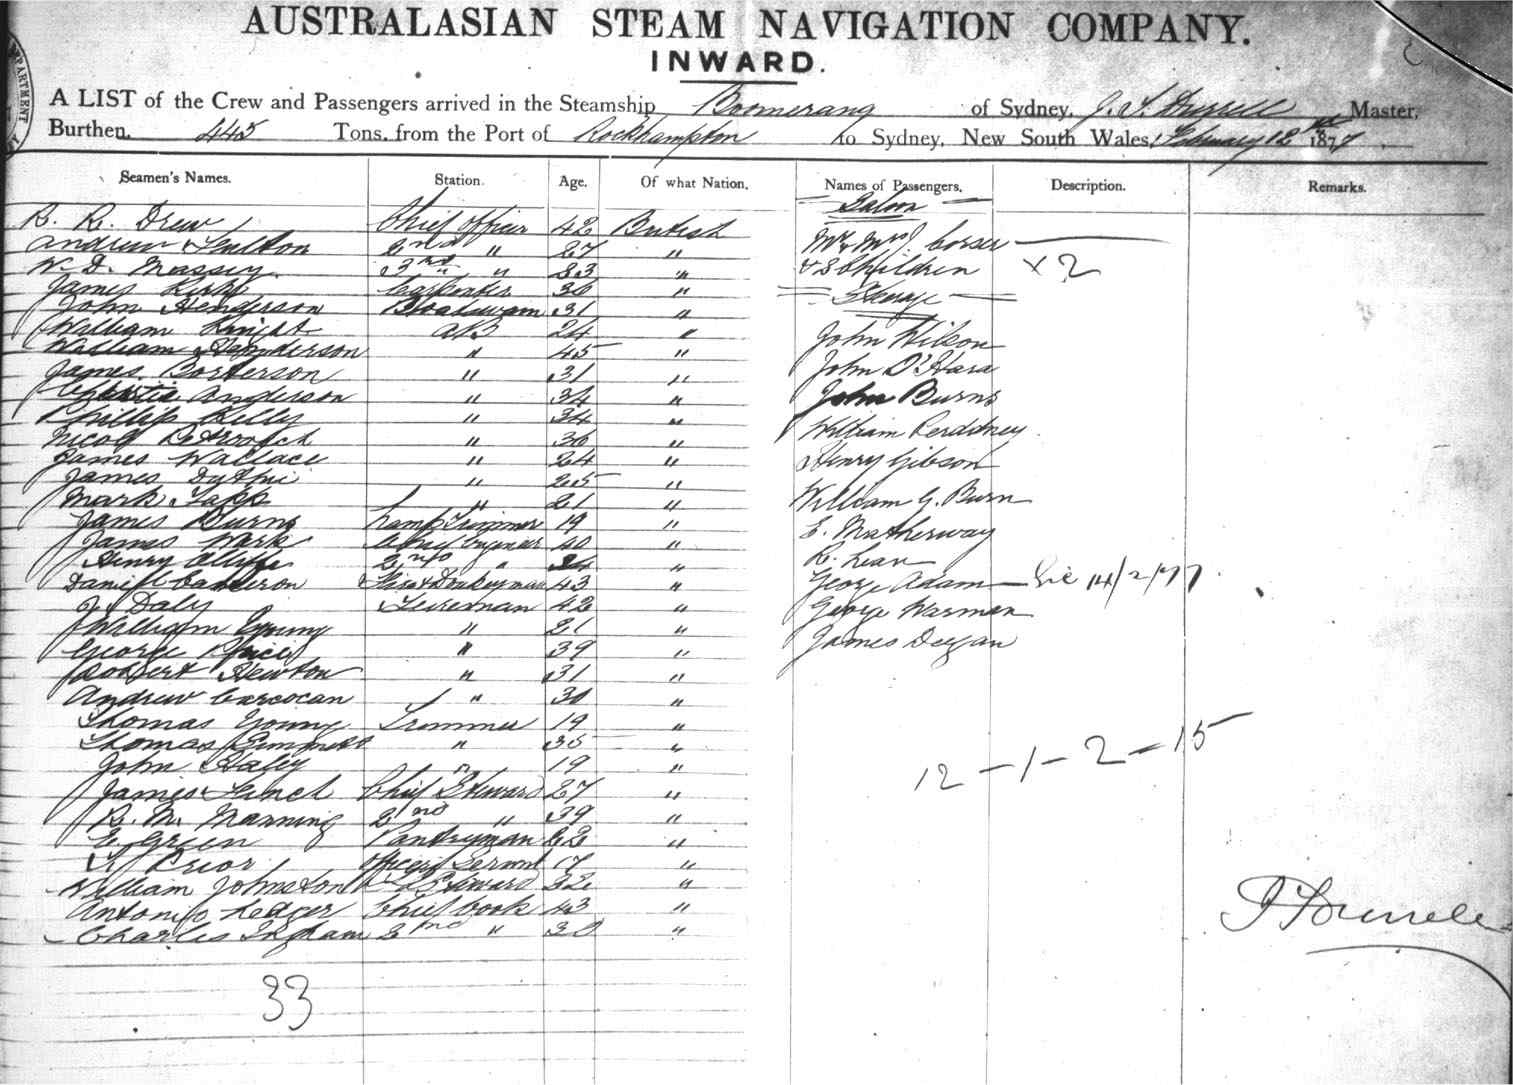 AUSTRALASIAN STEAM NAVIGATION COMPANY.
INWARD.
A LIST of the Crew and Passengers arrived in the Steamship Boomerang of Sydney, Master,
Burthen 445 Tons, from the Port of Rockhampton to Sydney, New South Wales, February 12th 1877
Seamen's Names. Station. Age. Of what Nation. Names of Passengers. Description. Remarks.
Saloon
R. R. Drew Chief Officer 42 British
Andrew Foulton 2nd " 27 "
W. D. Massey 3rd " 33 "
James Kirke Carpenter 36 "
John Henderson Boatswain 31 "
William Knight AB 24 "
William Henderson " 45 "
James " 31 "
Anderson " 34 "
Phillip Kelly " 34 "
Nicol " 36 "
James Wallace " 24 "
James Duthie " 25 "
Mark Tapp " 21 "
James Burns Lamp Trimmer 19 "
James Wark Chief Engineer 40 "
Henry 2nd " 34 "
Daniel Cameron Donkeyman 43 "
J. Daly Fireman 42 "
William Young " 21 "
George Price " 39 "
Robert Newton " 31 "
Andrew Corcoran " 30 "
Thomas Young Trimmer 19 "
Thomas " 35 "
John Haley " 19 "
James Finch Chief Steward 27 "
R. M. Manning 2nd " 39 "
E. Green Pantryman 22 "
Prior Officers Servant 17 "
William Johnston Steward 32 "
Antonio Ledger Chief Cook 43 "
Charles Ingham 2nd " 30 "
33
Mr & Mrs J. Corser
& 3 Children × 2
Steerage
John Wilson
John O'Hara
John Burns
William
Henry Gibson
William G. Burn
E. Matherway
R. Lean
George Adam 14/2/77
George Warman
James Deegan
12 – 1 – 2 – 15